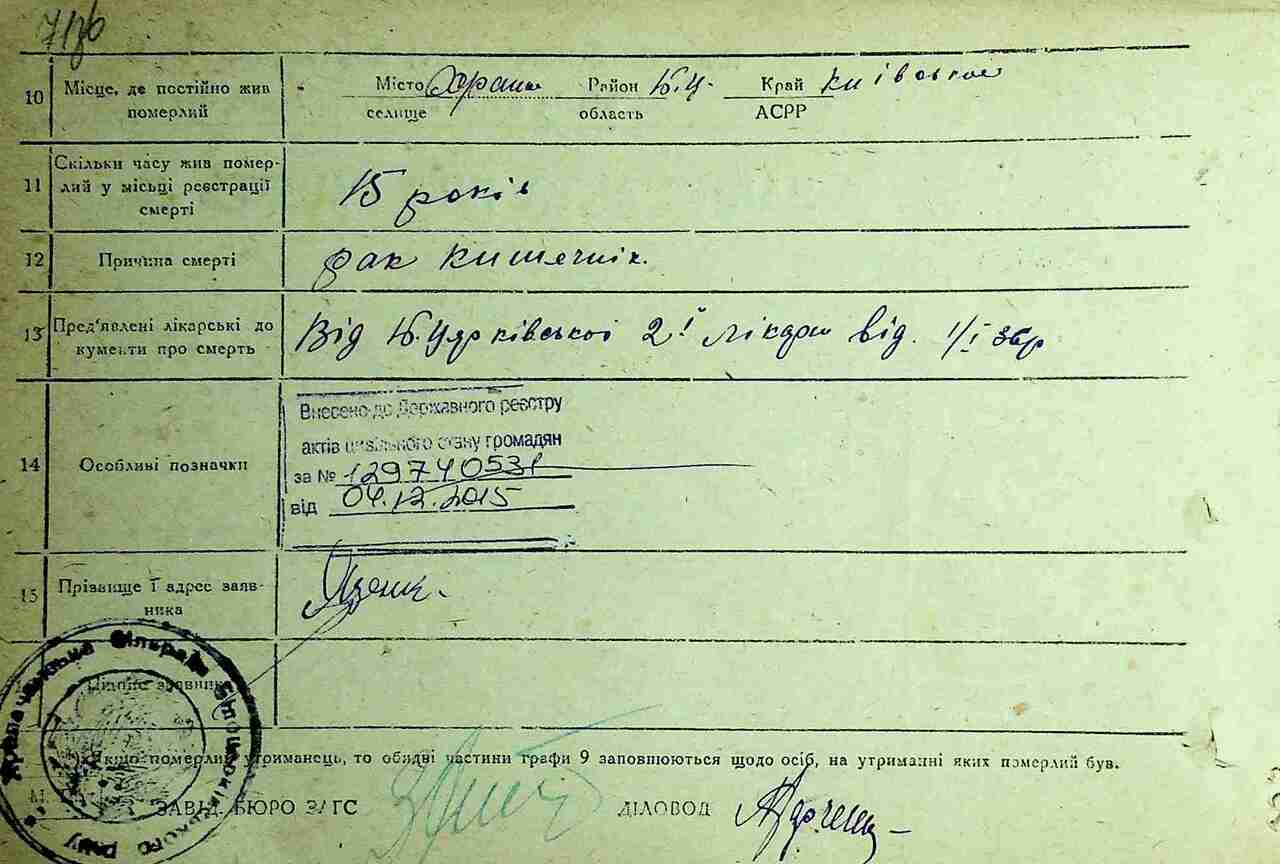 10 Місце, де постійно жив померлий
Місто Храпач Район Б.Ц. Край Київської
селище область АСРР
11 Скільки часу жив помер-
лий у місьці реєстрації
смерті
15 років
12 Причина смерті
рак кишечнік.
13 Пред'явлені лікарські до
кументи про смерть
Від Б. Церківської 2ї лікарні від. 1/I 36р
14 Особливі позначки
Внесено до Державного реєстру
актів цивільного стану громадян
за № 129740531
від 04.12.2015
15 Прізвище і адрес заяв-
ника
Підпис заявника
Якщо померлий утриманець, то обидві частини графи 9 заповнюються щодо осіб, на утриманні яких померлий був.
М. ЗАВІД. БЮРО ЗАГС ДІЛОВОД